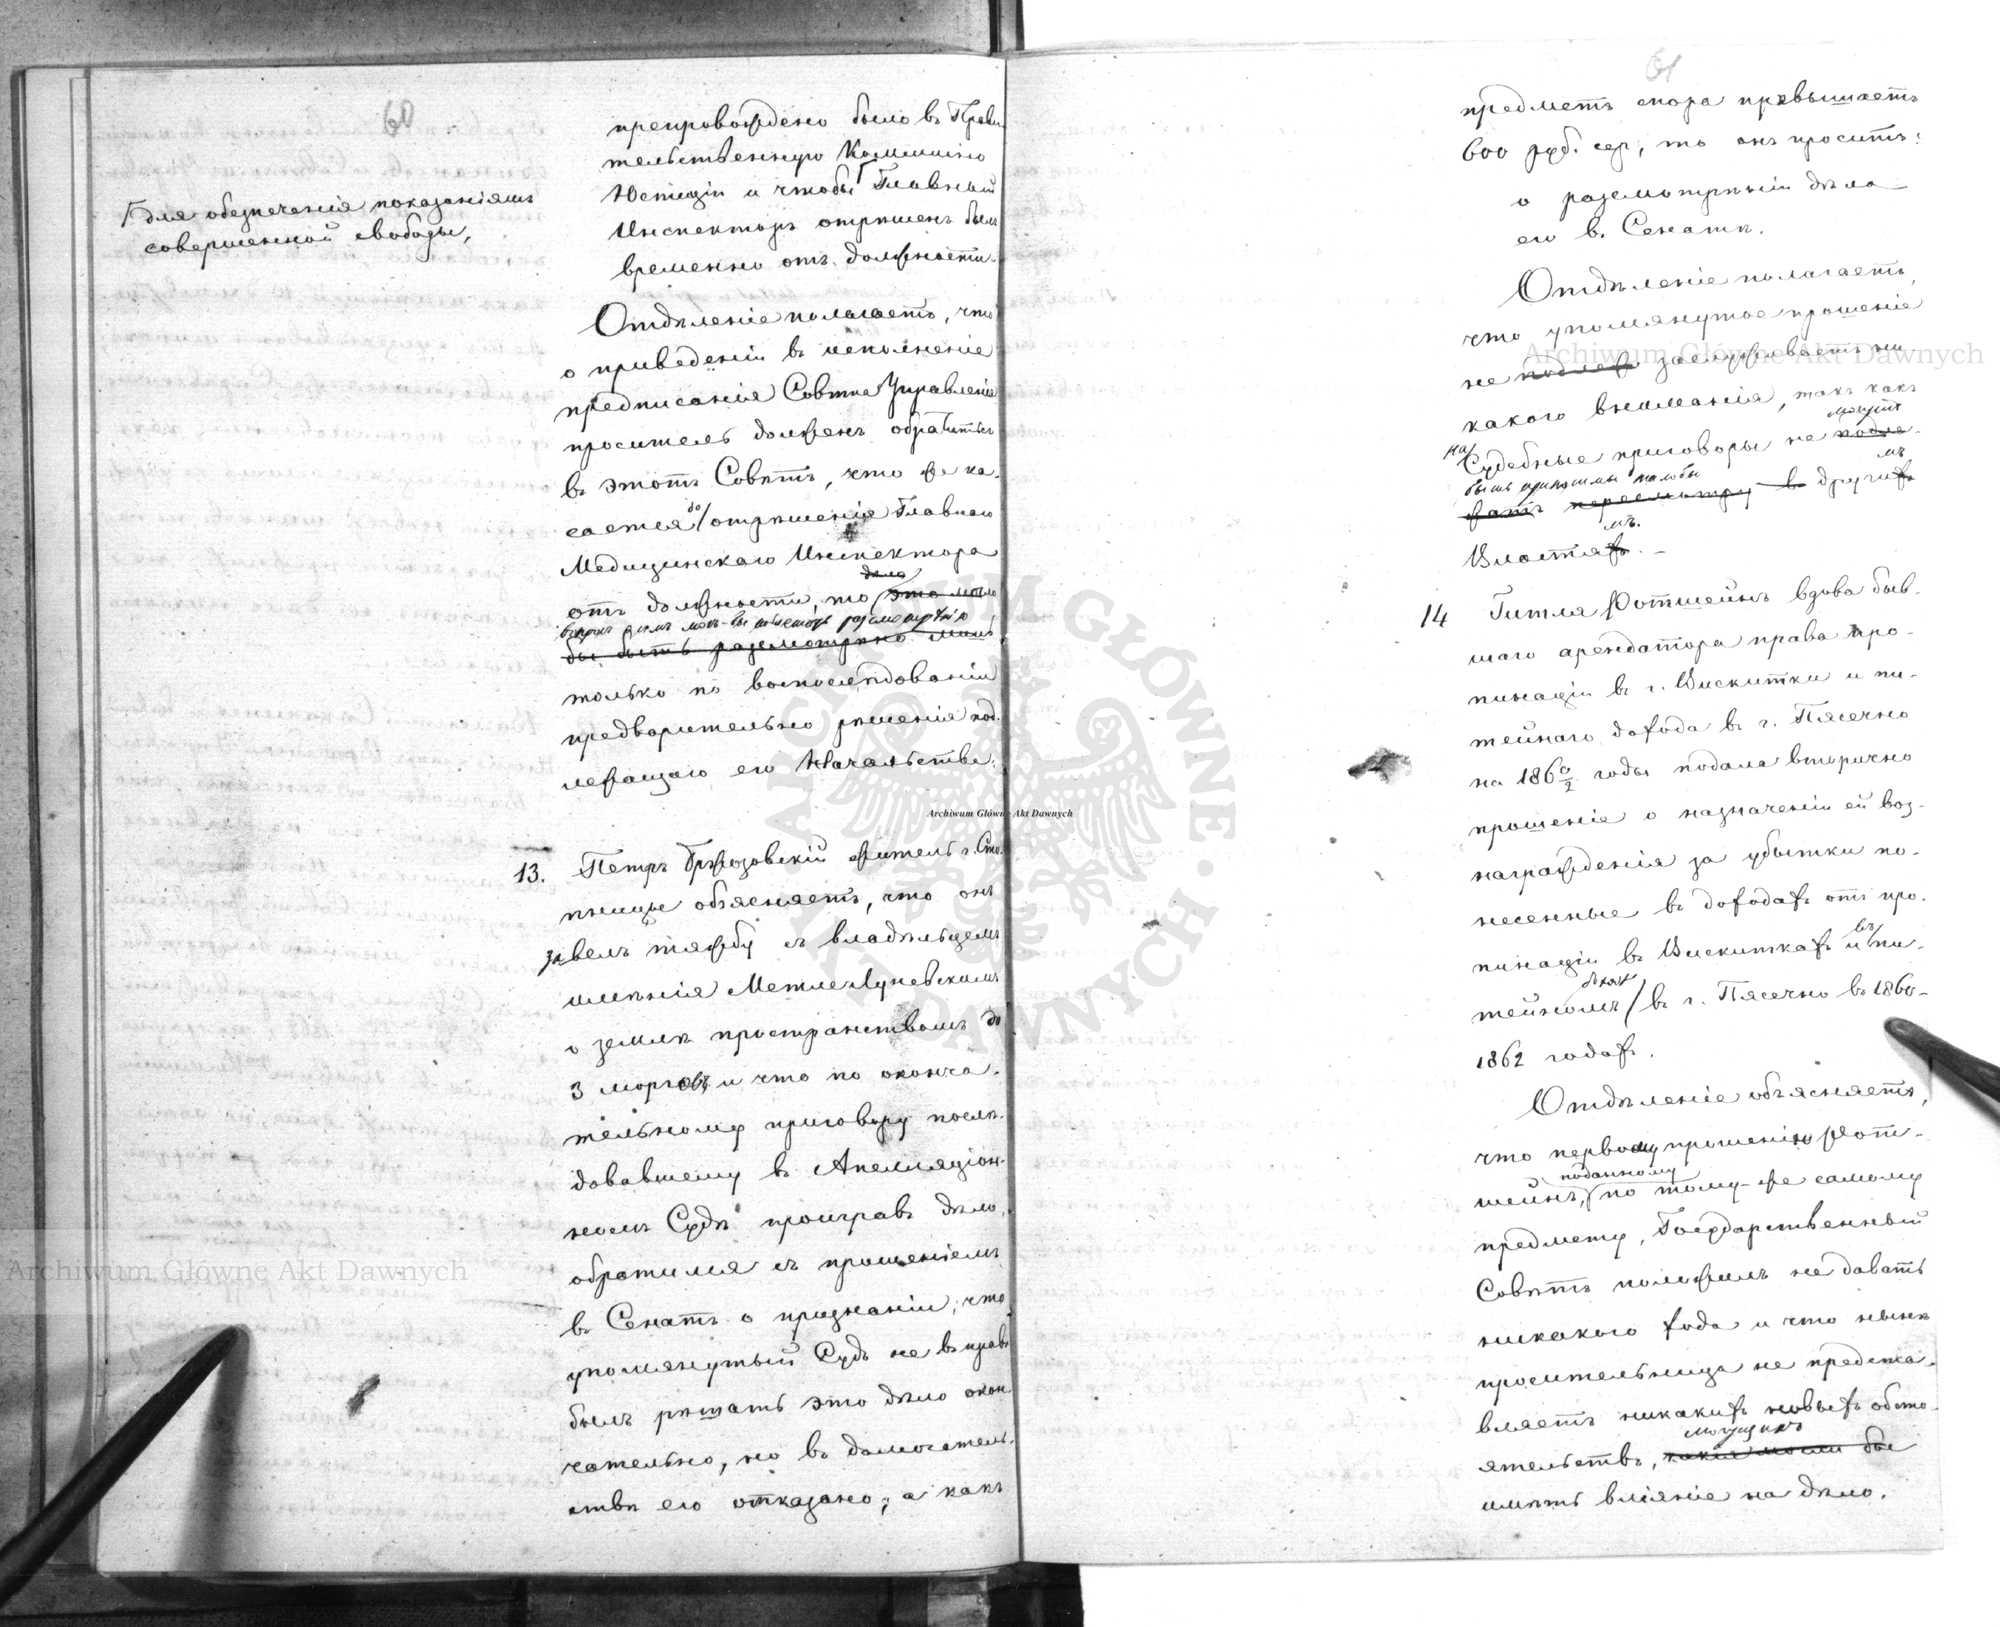 60
препровождено было въ Прави-
тельственную Коммисію
Юстиціи и чтобы Главный
Г для обезпеченія показаніямъ
совершенной свободы,
Инспекторъ отрѣшенъ былъ
временно отъ должности.
Отдѣленіе полагаетъ, что
о приведеніи въ исполненіе
предписанія Совѣта Управленія
проситель долженъ обратиться
въ этотъ Совѣтъ, что же ка-
сается до отрѣшенія Главнаго
Медицинскаго Инспектора
дѣло
отъ должности, то это могло
разсмотрѣнію
бы быть разсмотрѣно лишь
только по воспослѣдованіи
предварительно рѣшенія под-
лежащаго его Начальства.
13. Петръ Бржозовскій житель г. Сто-
пницы объясняетъ, что онъ
завелъ тяжбу съ владѣльцемъ
имѣнія Метле Луневскимъ
о землѣ пространствомъ до
3 морговъ и что по оконча-
тельному приговору послѣ-
довавшему въ Апелляціон-
номъ Судѣ проигравъ дѣло,
обратился съ прошеніемъ
въ Сенатъ о признаніи, что
упомянутый Судъ не въ правѣ
былъ рѣшать это дѣло окон-
чательно, но въ домогатель-
ствѣ его отказано; а какъ
61
предметъ спора превышаетъ
600 руб. сер., то онъ проситъ:
о разсмотрѣніи дѣла
его въ Сенатѣ.
Отдѣленіе полагаетъ,
что упомянутое прошеніе
не подлеж заслуживаетъ ни
какого вниманія, такъ какъ
могутъ
на Судебные приговоры не подле-
быть приносимы жалобы мъ
жатъ пересмотру въ другихъ
мъ.
Властяхъ. –
14 Гитля Ротшейнъ вдова быв-
шаго арендатора права про-
пинаціи въ г. Вискитки и пи-
тейнаго дохода въ г. Пясечно
на 1860/2 годы подала вторично
прошеніе о назначеніи ей воз-
награжденія за убытки по-
несенные въ доходахъ отъ про-
въ
пинаціи въ Вискиткахъ и пи-
тейномъ въ г. Пясечно въ 1860-
1862 годахъ.
Отдѣленіе объясняетъ,
что первому прошенію Рот-
поданному
шейнъ, по тому-же самому
предмету, Государственный
Совѣтъ положилъ не давать
никакого хода и что нынѣ
просительница не предста-
вляетъ никакихъ новыхъ обсто-
могущихъ
ятельствъ, какія могли бы
имѣть вліяніе на дѣло.
Archiwum Główne Akt Dawnych
Archiwum Główne Akt Dawnych
Archiwum Główne Akt Dawnych
ARCHIWUM GŁÓWNE AKT DAWNYCH